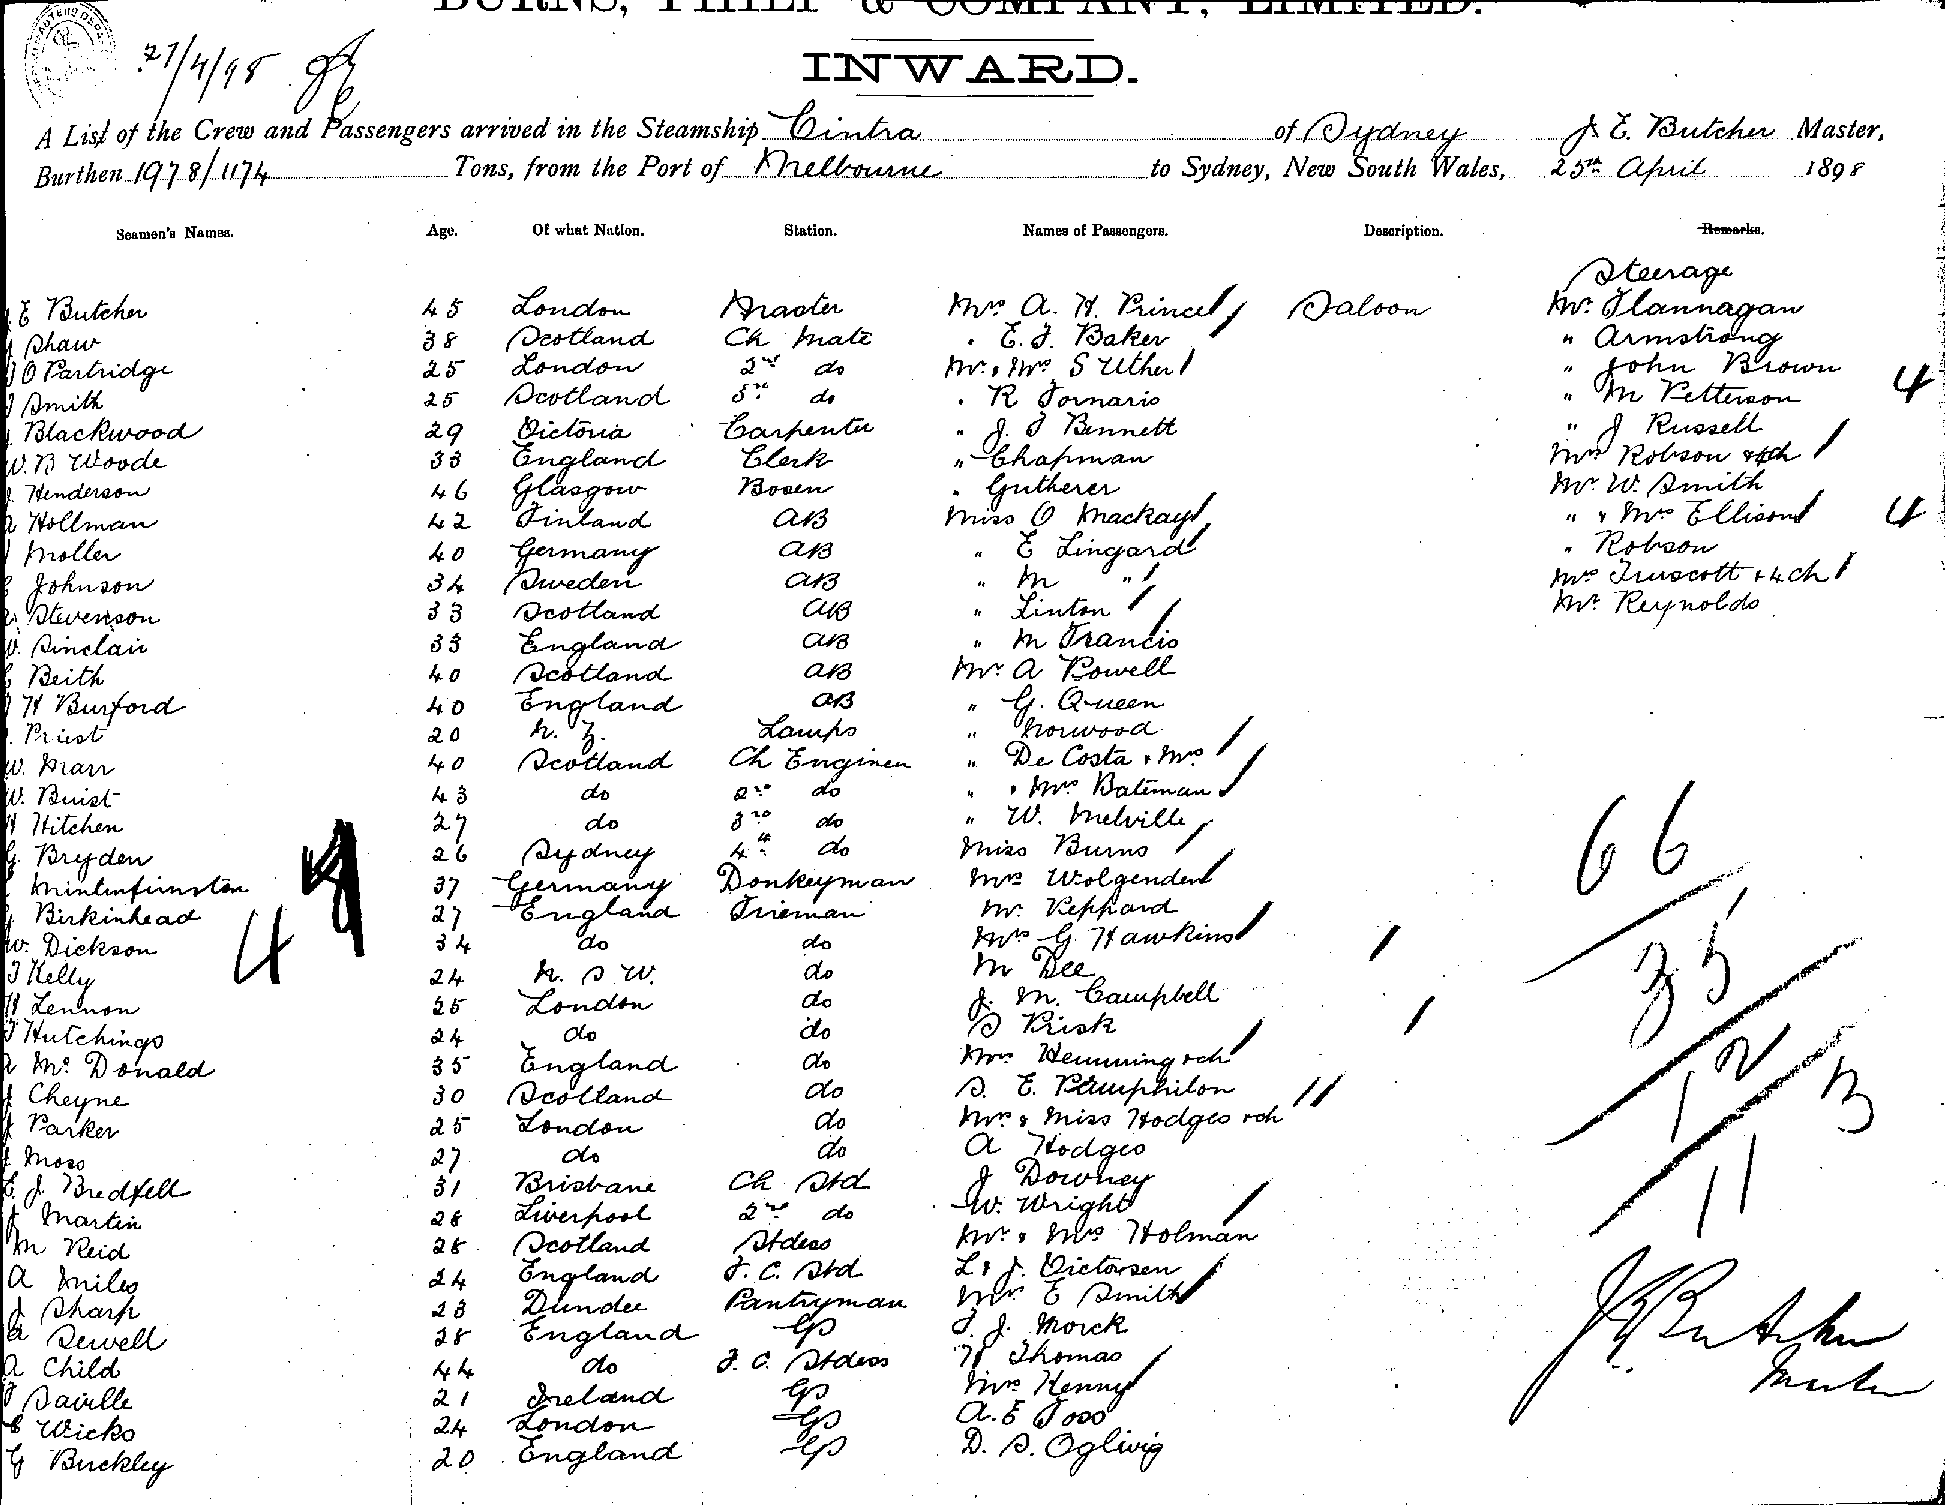 BURNS, PHILP & COMPANY, LIMITED.
27/4/98
INWARD.
A List of the Crew and Passengers arrived in the Steamship Cintra of Sydney J. E. Butcher Master,
Burthen 1978/1174 Tons, from the Port of Melbourne to Sydney, New South Wales, 25th April 1898
Seamen's Names. Age. Of what Nation. Station. Names of Passengers. Description. Remarks.
Steerage
J E Butcher 45 London Master Mrs A. H. Prince Saloon Mr. Flannagan
Shaw 38 Scotland Ch Mate " E. J. Baker " Armstrong
O Partridge 25 London 2nd do Mr. & Mrs S Uther " John Brown
Smith 25 Scotland 3rd do " R Fornaris " M Petterson 4
Blackwood 29 Victoria Carpenter " J. F Bennett " J Russell
W. B Woode 33 England Clerk " Chapman Mrs Robson & ch
Henderson 46 Glasgow Bosen " Gutherer Mr W. Smith
Hollman 42 Finland AB Miss O Mackay " & Mrs Ellison 4
Moller 40 Germany AB " E Lingard " Robson
Johnson 34 Sweden AB " M " Mrs Truscott + 4 ch
Stevenson 33 Scotland AB " Linton Mr Reynolds
Sinclair 33 England AB " M Francis
Beith 40 Scotland AB Mr A Powell
H Burford 40 England AB " G. Queen
Priest 20 N. Z. Lamps " Norwood
W. Marr 40 Scotland Ch Engineer " De Costa & Mrs
W. Buist 43 do 2nd do " & Mrs Bateman
H Hitchen 27 do 3rd do " W. Melville
G. Bryden 26 Sydney 4th do Miss Burns 66
37 Germany Donkeyman Mrs Wolgenden
Birkinhead 27 England Frieman Mr. Keppard
W. Dickson 34 do do Mrs G. Hawkins
T Kelly 4 24 N. S W. do M Dee 35
H Lennon 25 London do J. M. Campbell
T Hutchings 24 do do S Prisk
A McDonald 35 England do Mrs Hemming & ch 12
J Cheyne 30 Scotland do S. E. Pamphilon 3
J Parker 25 London do Mrs & Miss Hodges & ch
Moss 27 do do A Hodges
E. J. Bredfell 31 Brisbane Ch Std J Downey
J Martin 28 Liverpool 2nd do W. Wright 11
M Reid 28 Scotland Stdess Mr & Mrs Holman
A Miles 24 England F. C. Std L & J. Victorsen
J Sharp 23 Dundee Pantryman Mrs E Smith
A Sewell 28 England GS F. J. Morck J E Butcher
A Child 44 do F. C. Stdess H Thomas Master
F Saville 21 Ireland GS Mrs Kenny
E Wicks 24 London GS A. E Joss
G Buckley 20 England GS D. S. Oglivig